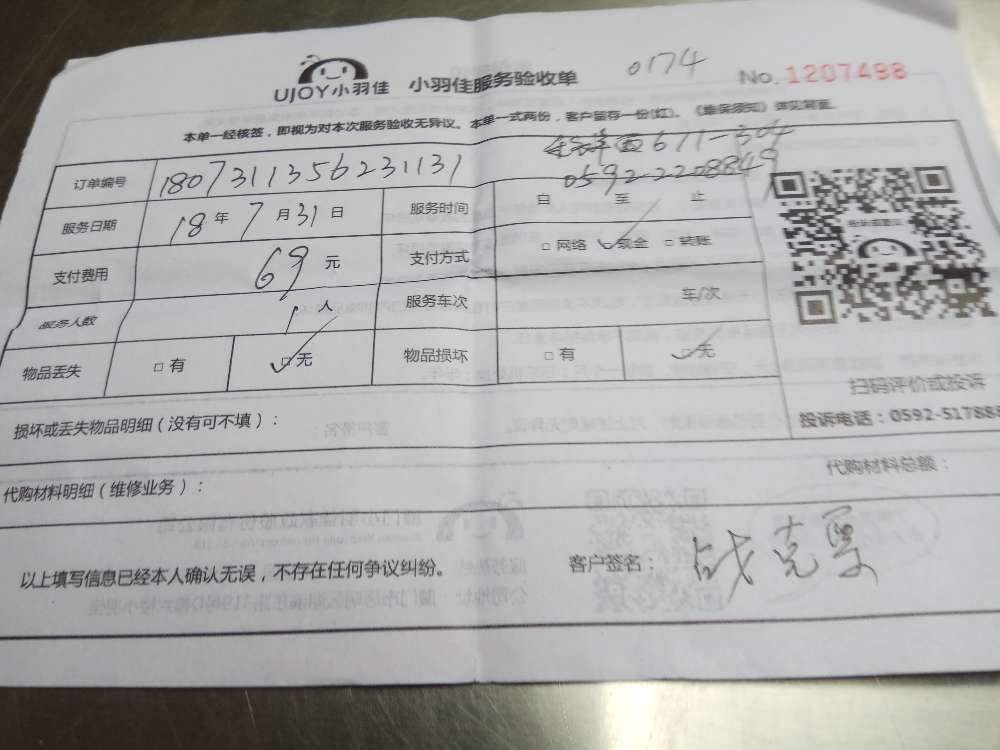 UJOY小羽佳 小羽佳服务验收单 0174 No. 1207498
本单一经核签，即视为对本次服务验收无异议。本单一式两份，客户留存一份(红)。《维保须知》详见背面。
671-304
订单编号 1807311356231131 0592-2208849
服务日期 18 年 7 月 31 日 服务时间 自 至 止
支付费用 69 元 支付方式 □ 网络 ☑ 现金 □ 转账
服务人数 1 人 服务车次 车/次
物品丢失 □ 有 ☑ 无 物品损坏 □ 有 ☑ 无
扫码评价或投诉
损坏或丢失物品明细（没有可不填）： 投诉电话：0592-517888
代购材料明细（维修业务）： 代购材料总额：
以上填写信息已经本人确认无误，不存在任何争议纠纷。 客户签名：